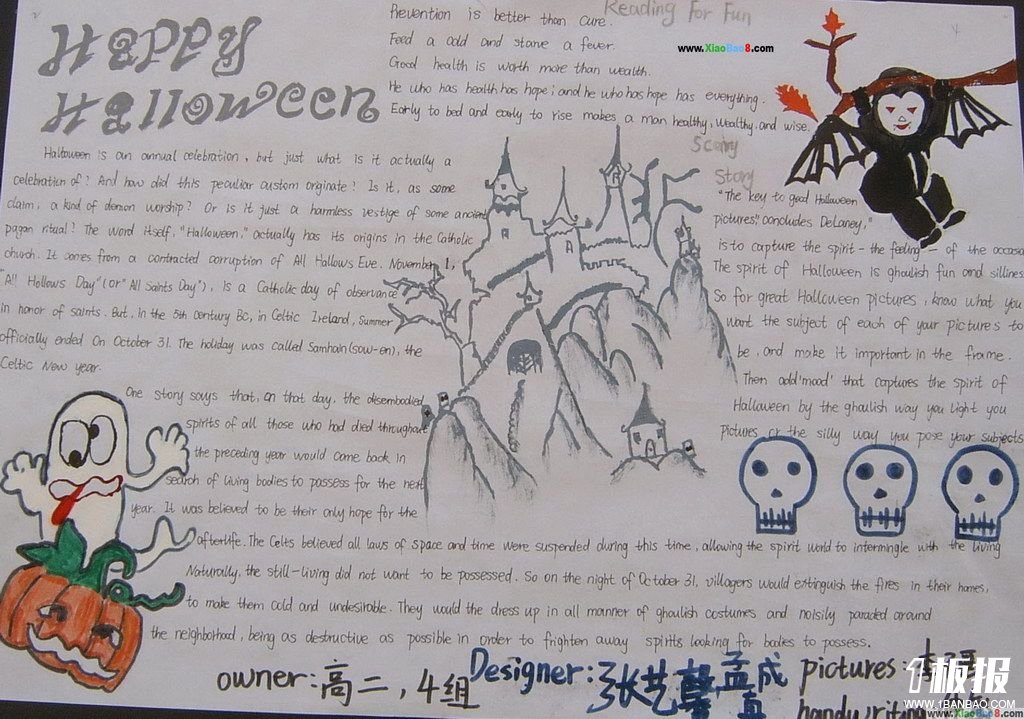 Happy
Halloween
Reading For Fun
Prevention is better than cure.
Feed a cold and starve a fever.
Good health is worth more than wealth.
He who has health has hope; and he who has hope has everything.
Early to bed and early to rise makes a man healthy, wealthy. and wise.
www.XiaoBao8.com
Halloween is an annual celebration, but just what is it actually a
celebration of? And how did this peculiar custom originate? Is it, as some
claim, a kind of demon worship? Or is it just a harmless vestige of some ancient
pagan ritual? The word itself, "Halloween," actually has its origins in the Catholic
church. It comes from a contracted corruption of All Hallows Eve. November 1,
"All Hollows Day" (or "All Saints Day"), is a Catholic day of observance
in honor of saints. But, in the 5th century BC, in Celtic Ireland, summer
officially ended On October 31. The holiday was called Samhain (sow-en), the
Celtic New year.
One story says that, on that day, the disembodied
spirits of all those who had died throughout
the preceding year would come back in
search of living bodies to possess for the next
year. It was believed to be their only hope for the
afterlife. The Celts believed all laws of space and time were suspended during this time, allowing the spirit world to intermingle with the living
Naturally, the still-living did not want to be possessed. So on the night of October 31, villagers would extinguish the fires in their homes,
to make them cold and undesirable. They would the dress up in all manner of ghoulish costumes and noisily paraded around
the neighborhood, being as destructive as possible in order to frighten away spirits looking for bodies to possess.
Scary
Story
"The key to good Halloween
pictures," concludes Delaney,"
is to capture the spirit - the feeling - of the occasion
The spirit of Halloween is ghoulish fun and silliness
So for great Halloween pictures, know what you
want the subject of each of your pictures to
be, and make it important in the frame.
Then add 'mood' that captures the spirit of
Halloween by the ghoulish way you light you
pictures or the silly way you pose your subjects
owner: 高二, 4组
Designer: 张艺馨 孟成真
pictures:
handwriting
1板报
WWW.1BANBAO.COM
www.XiaoBao8.com